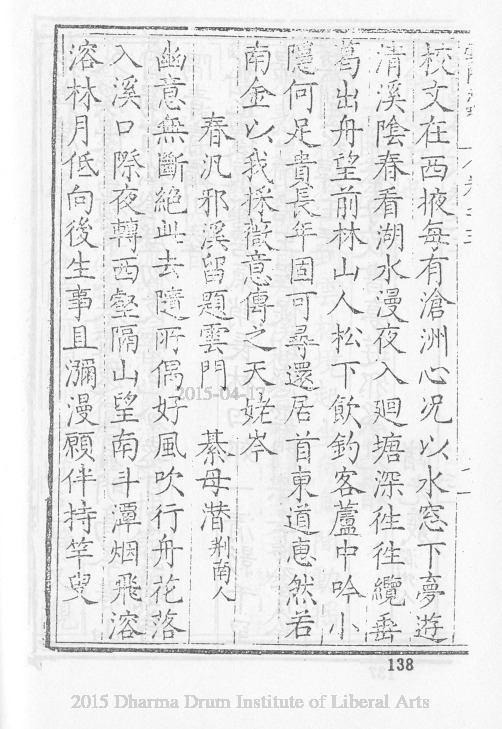 校文在西掖每有滄洲心况以水窓下夢遊
清溪陰春看湖水漫夜入廻塘深徃徃纜垂
葛出舟望前林山人松下飲釣客蘆中吟小
隱何足貴長年固可尋還居首東道惠然若
南金以我採薇意傳之天姥岑
春汎邪溪留題雲門 綦母潛荆南人
幽意無斷絕此去隨所偶好風吹行舟花落
入溪口際夜轉西壑隔山望南斗潭烟飛溶
溶林月低向後生事且瀰漫願伴持竿叟
138
2015-04-17
2015 Dharma Drum Institute of Liberal Arts